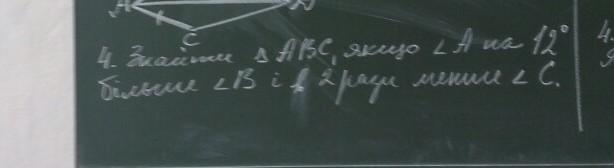 A
C
4. Знайти △ ABC, якщо ∠A на 12°
більше ∠B і в 2 рази менше ∠C.
4.